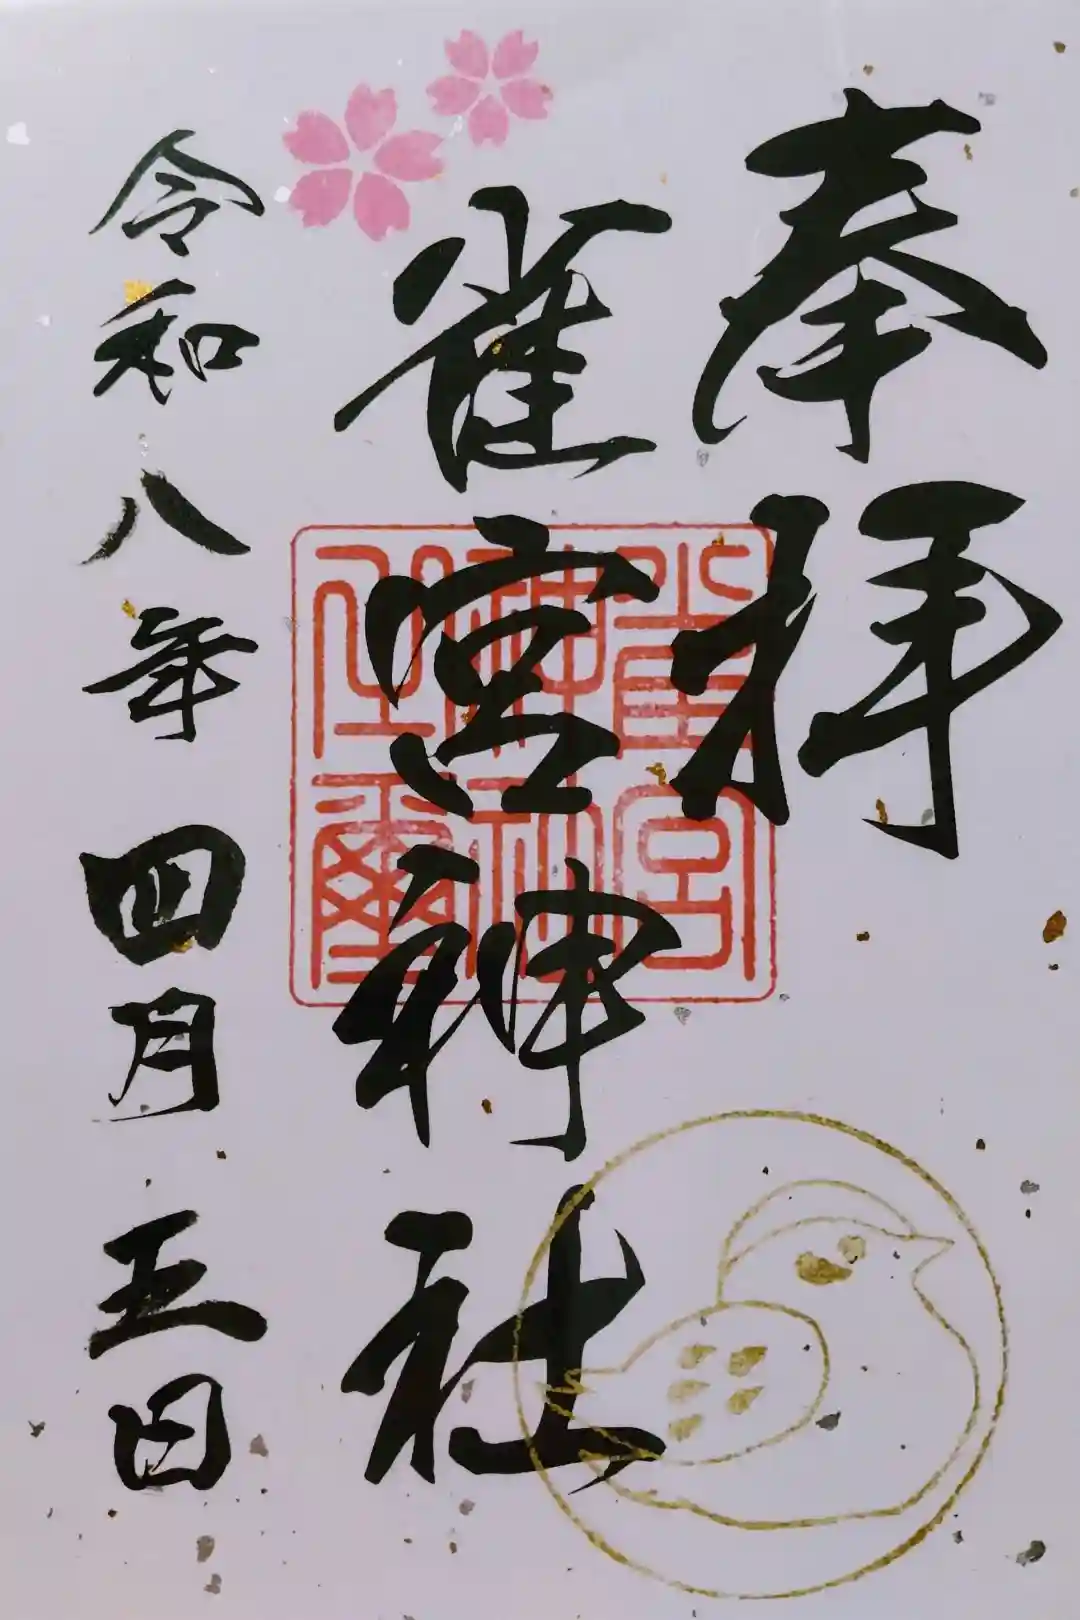 奉拝
雀宮神社
令和八年四月五日
雀宮
神社
璽